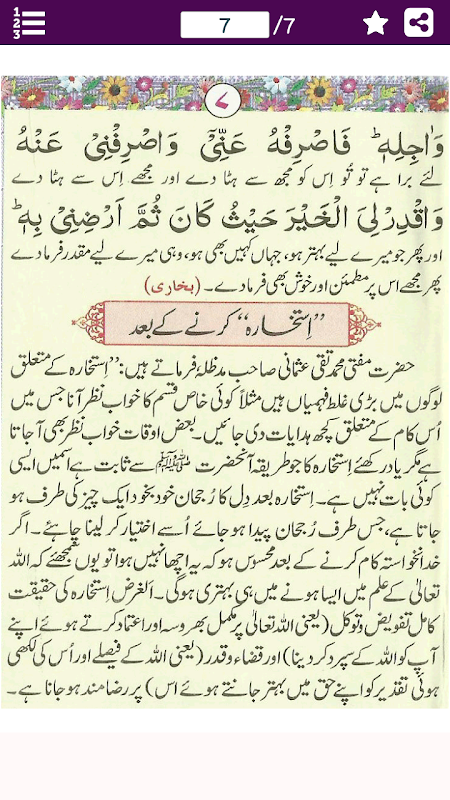 7 /7
۷
وَاٰجِلِهٖ فَاصْرِفْهُ عَنِّيْ وَاصْرِفْنِيْ عَنْهُ
لئے برا ہے تو تُو اِس کو مجھ سے ہٹا دے اور مجھے اِس سے ہٹا دے
وَاقْدِرْ لِيَ الْخَيْرَ حَيْثُ كَانَ ثُمَّ اَرْضِنِيْ بِهٖ
اور پھر جو میرے لیے بہتر ہو، جہاں کہیں بھی ہو، وہی میرے لیے مقدر فرما دے
پھر مجھے اس پر مطمئن اور خوش بھی فرما دے۔ (بخاری)
”اِستخارہ“ کرنے کے بعد
حضرت مفتی محمد تقی عثمانی صاحب مدظلہٗ فرماتے ہیں: ”اِستخارہ کے متعلق
لوگوں میں بڑی غلط فہمیاں ہیں مثلاً کوئی خاص قسم کا خواب نظر آنا جس میں
اُس کام کے متعلق کچھ ہدایات دی جائیں۔ بعض اوقات خواب نظر بھی آ جاتا
ہے مگر یاد رکھئے اِستخارہ کا جو طریقہ آنحضرت ﷺ سے ثابت ہے اسمیں ایسی
کوئی بات نہیں ہے۔ اِستخارہ بعد دِل کا رُجحان خود بخود ایک چیز کی طرف ہو
جاتا ہے، جس طرف رُجحان پیدا ہو جائے اُسے اختیار کر لینا چاہئے۔ اگر
خدانخواستہ کام کرنے کے بعد محسوس ہو کہ یہ اچھا نہیں ہوا تو یوں سمجھئے کہ اللہ
تعالٰی کے علم میں ایسا ہونے میں ہی بہتری ہوگی۔ الغرض اِستخارہ کی حقیقت
کامل تفویض و توکل (یعنی اللہ تعالٰی پر مکمل بھروسہ اور اعتماد کرتے ہوئے اپنے
آپ کو اللہ کے سپرد کر دینا) اور قضاء و قدر (یعنی اللہ کے فیصلے اور اُس کی لکھی
ہوئی تقدیر کو اپنے حق میں بہتر جانتے ہوئے اس) پر رضا مند ہو جانا ہے۔